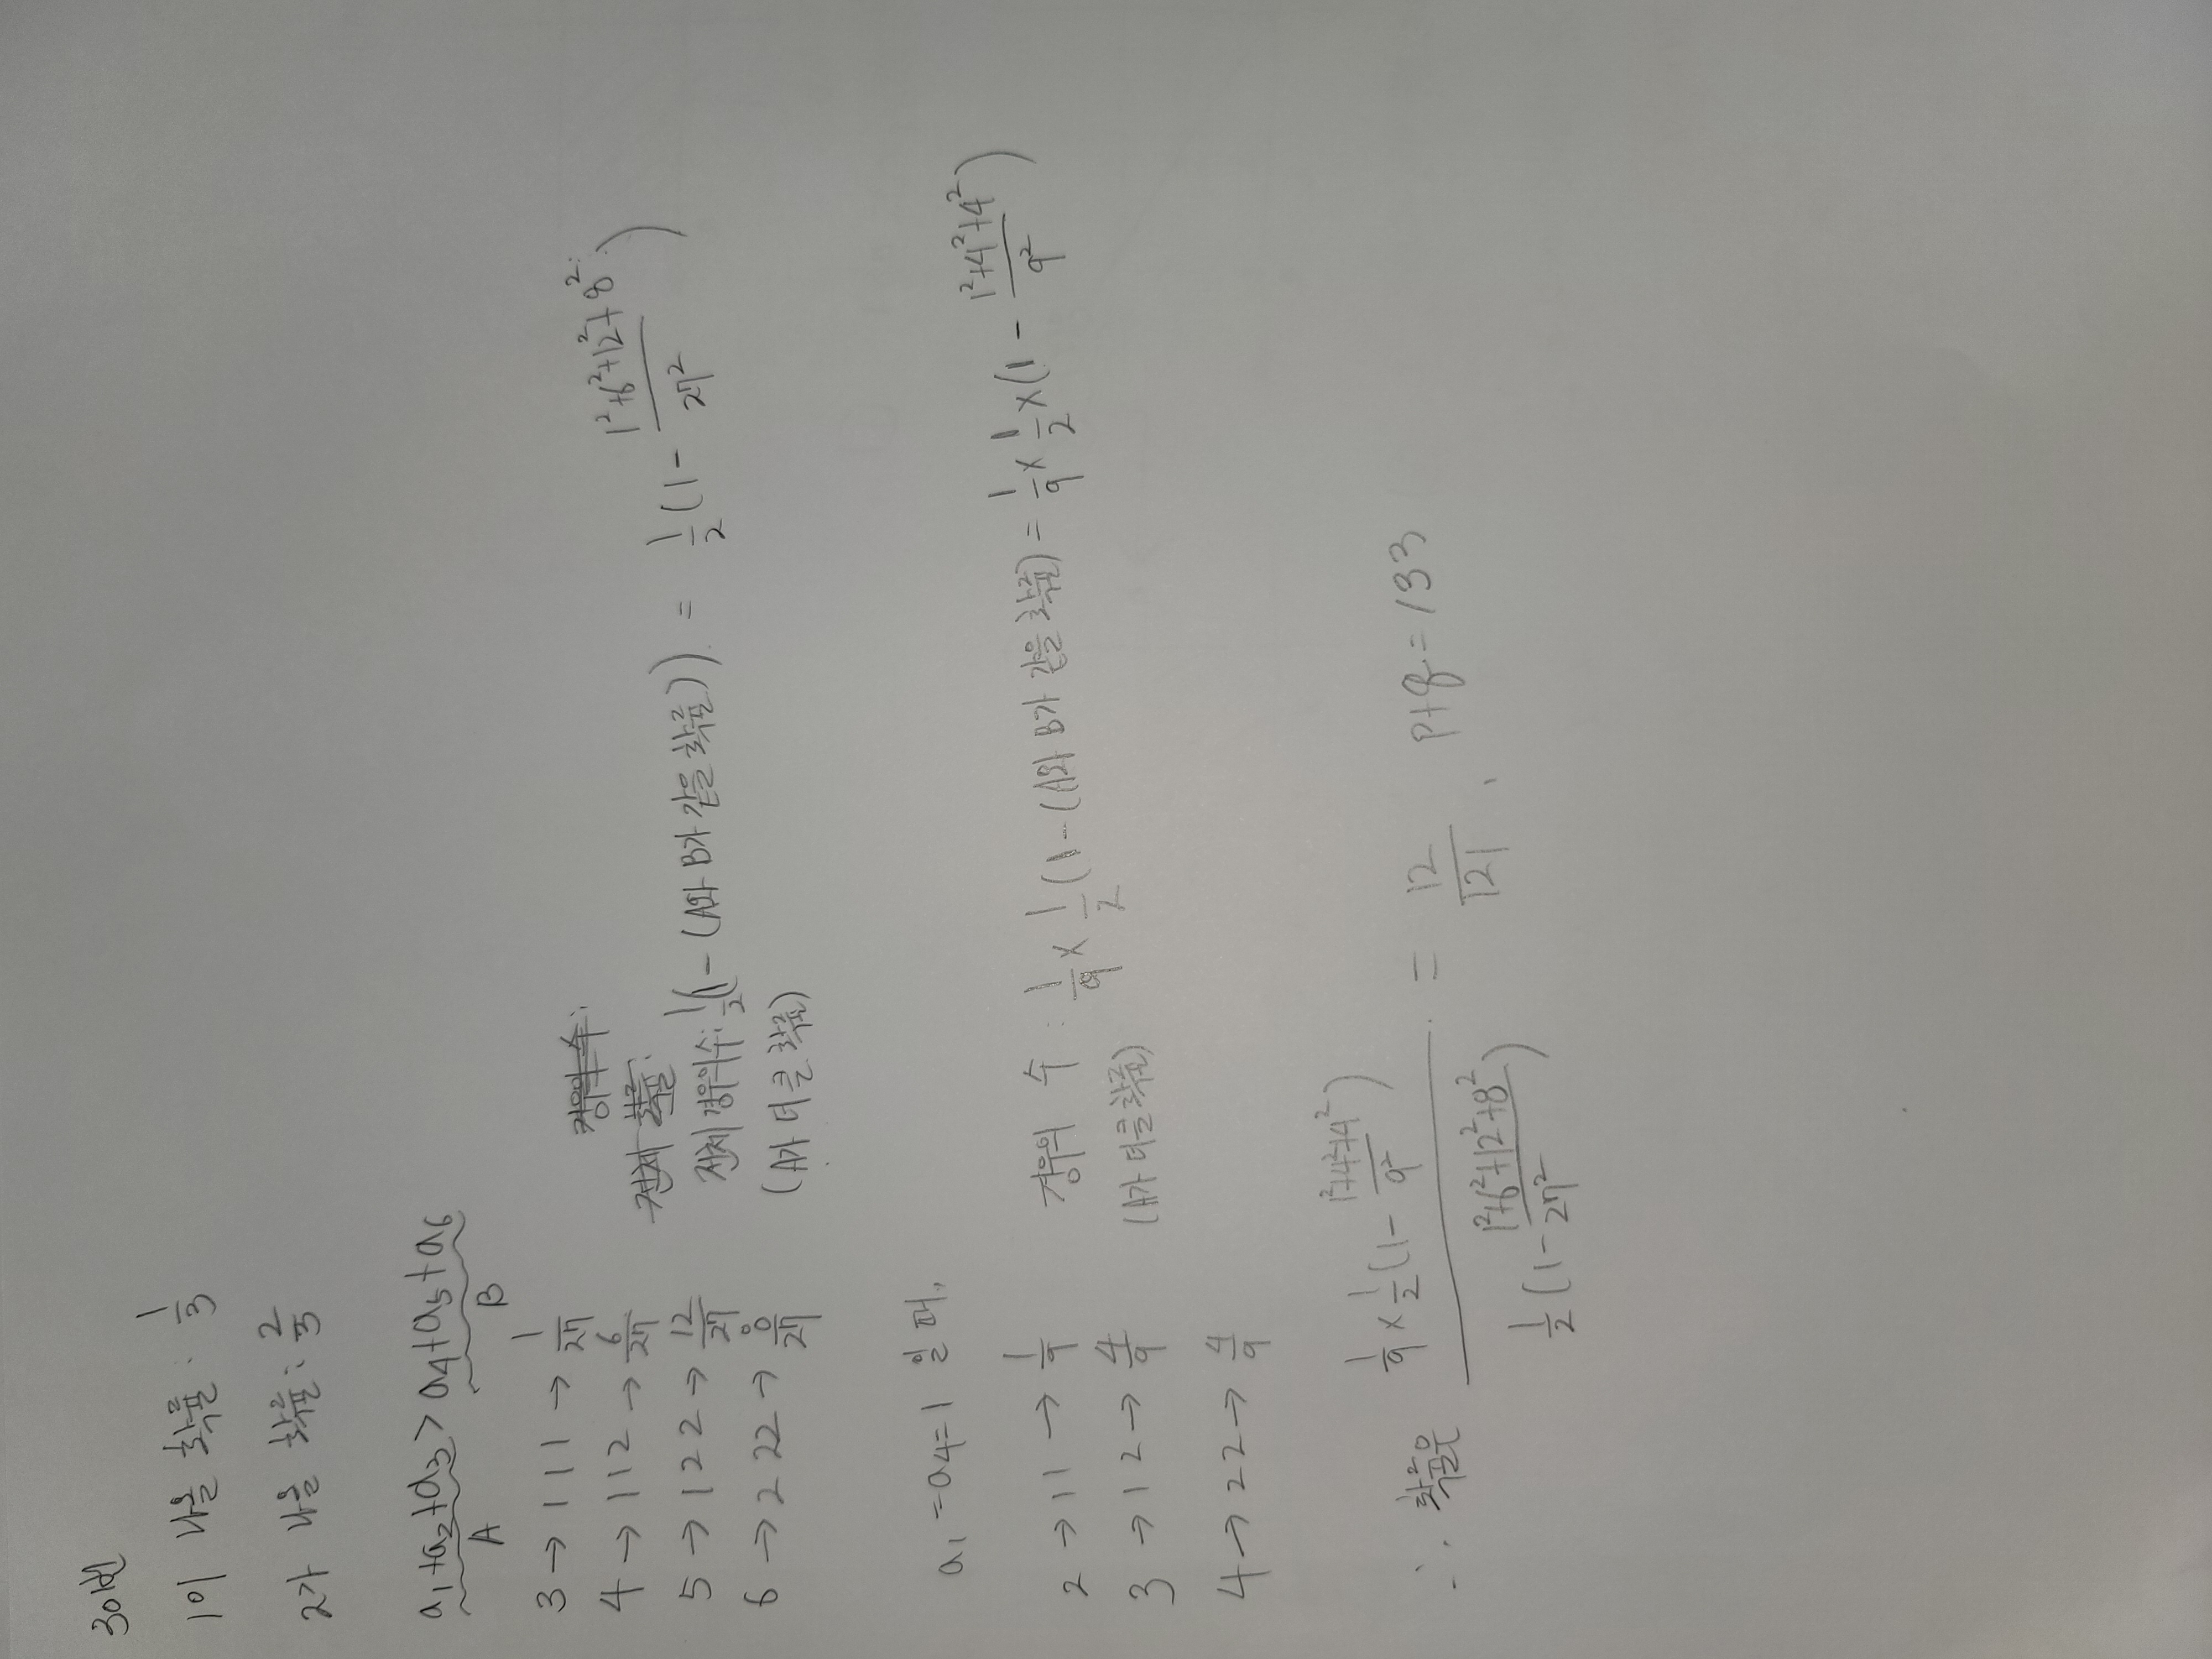 30번
1이 나올 확률 : 1/3
2가 나올 확률 : 2/3
a₁+a₂+a₃ > a₄+a₅+a₆
A B
3 → 111 → 1/27
4 → 112 → 6/27
5 → 122 → 12/27
6 → 222 → 8/27
경우의 수 :
전체 확률 :
전체 경우의수 : 1/2(1 - (A와 B가 같을 확률)) = 1/2(1 - (1²+6²+12²+8²)/27²)
(A가 더 클 확률)
a₁=a₄=1 일 때,
2 → 11 → 1/9
3 → 12 → 4/9
4 → 22 → 4/9
경우의 수 : 1/9 × 1/2 (1-(A와 B가 같을 확률) = 1/9 × 1/2 × (1 - (1²+4²+4²)/9²)
(A가 더 클 확률)
∴ 확률은 (1/9 × 1/2 (1 - (1²+4²+4²)/9²)) / (1/2 (1 - (1²+6²+12²+8²)/27²)) = 12/121, p+q=133